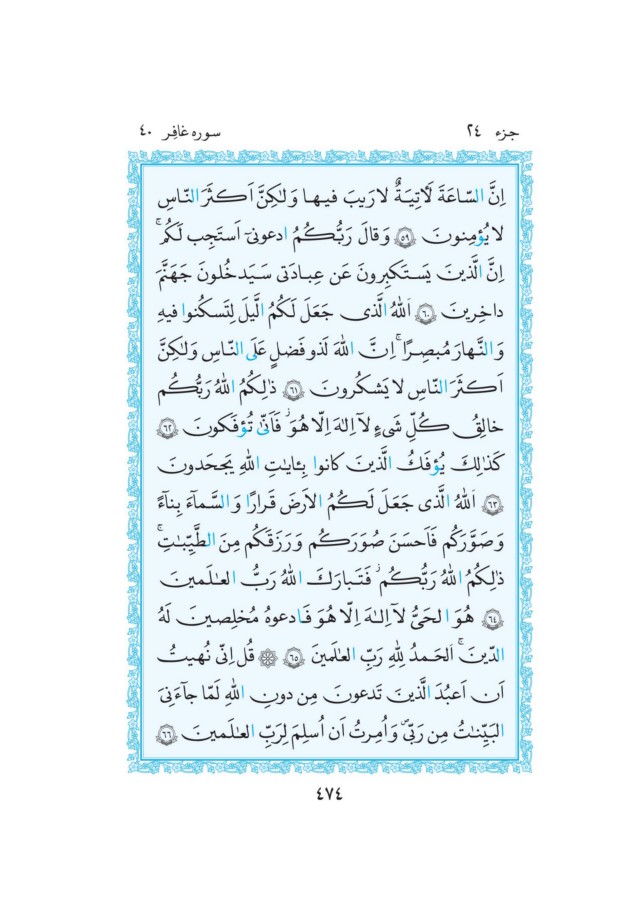 جزء ٢٤
سوره غافِر ٤٠
اِنَّ السّاعَةَ لَآتِيَةٌ لارَيبَ فيها وَلٰكِنَّ اَكثَرَ النّاسِ
لا يُؤمِنونَ ﴿٥٩﴾ وَقالَ رَبُّكُمُ ادعونى اَستَجِب لَكُم ۚ
اِنَّ الَّذينَ يَستَكبِرونَ عَن عِبادَتى سَيَدخُلونَ جَهَنَّمَ
داخِرينَ ﴿٦٠﴾ اَللهُ الَّذى جَعَلَ لَكُمُ الَّيلَ لِتَسكُنوا فيهِ
وَالنَّهارَ مُبصِرًا ۚ اِنَّ اللهَ لَذو فَضلٍ عَلَى النّاسِ وَلٰكِنَّ
اَكثَرَ النّاسِ لا يَشكُرونَ ﴿٦١﴾ ذٰلِكُمُ اللهُ رَبُّكُم
خالِقُ كُلِّ شَىءٍ لآ اِلٰهَ اِلّا هُوَ ۖ فَاَنّىٰ تُؤفَكونَ ﴿٦٢﴾
كَذٰلِكَ يُؤفَكُ الَّذينَ كانوا بِـٔايٰتِ اللهِ يَجحَدونَ
﴿٦٣﴾ اَللهُ الَّذى جَعَلَ لَكُمُ الاَرضَ قَرارًا وَالسَّمآءَ بِنآءً
وَصَوَّرَكُم فَاَحسَنَ صُوَرَكُم وَرَزَقَكُم مِنَ الطَّيِّبٰتِ ۚ
ذٰلِكُمُ اللهُ رَبُّكُم ۖ فَتَبارَكَ اللهُ رَبُّ العٰلَمينَ
﴿٦٤﴾ هُوَ الحَىُّ لآ اِلٰهَ اِلّا هُوَ فَادعوهُ مُخلِصينَ لَهُ
الدّينَ ۚ اَلحَمدُ لِلّٰهِ رَبِّ العٰلَمينَ ﴿٦٥﴾ ۞ قُل اِنّى نُهيتُ
اَن اَعبُدَ الَّذينَ تَدعونَ مِن دونِ اللهِ لَمّا جآءَنِىَ
البَيِّنٰتُ مِن رَبّى وَاُمِرتُ اَن اُسلِمَ لِرَبِّ العٰلَمينَ ﴿٦٦﴾
٤٧٤